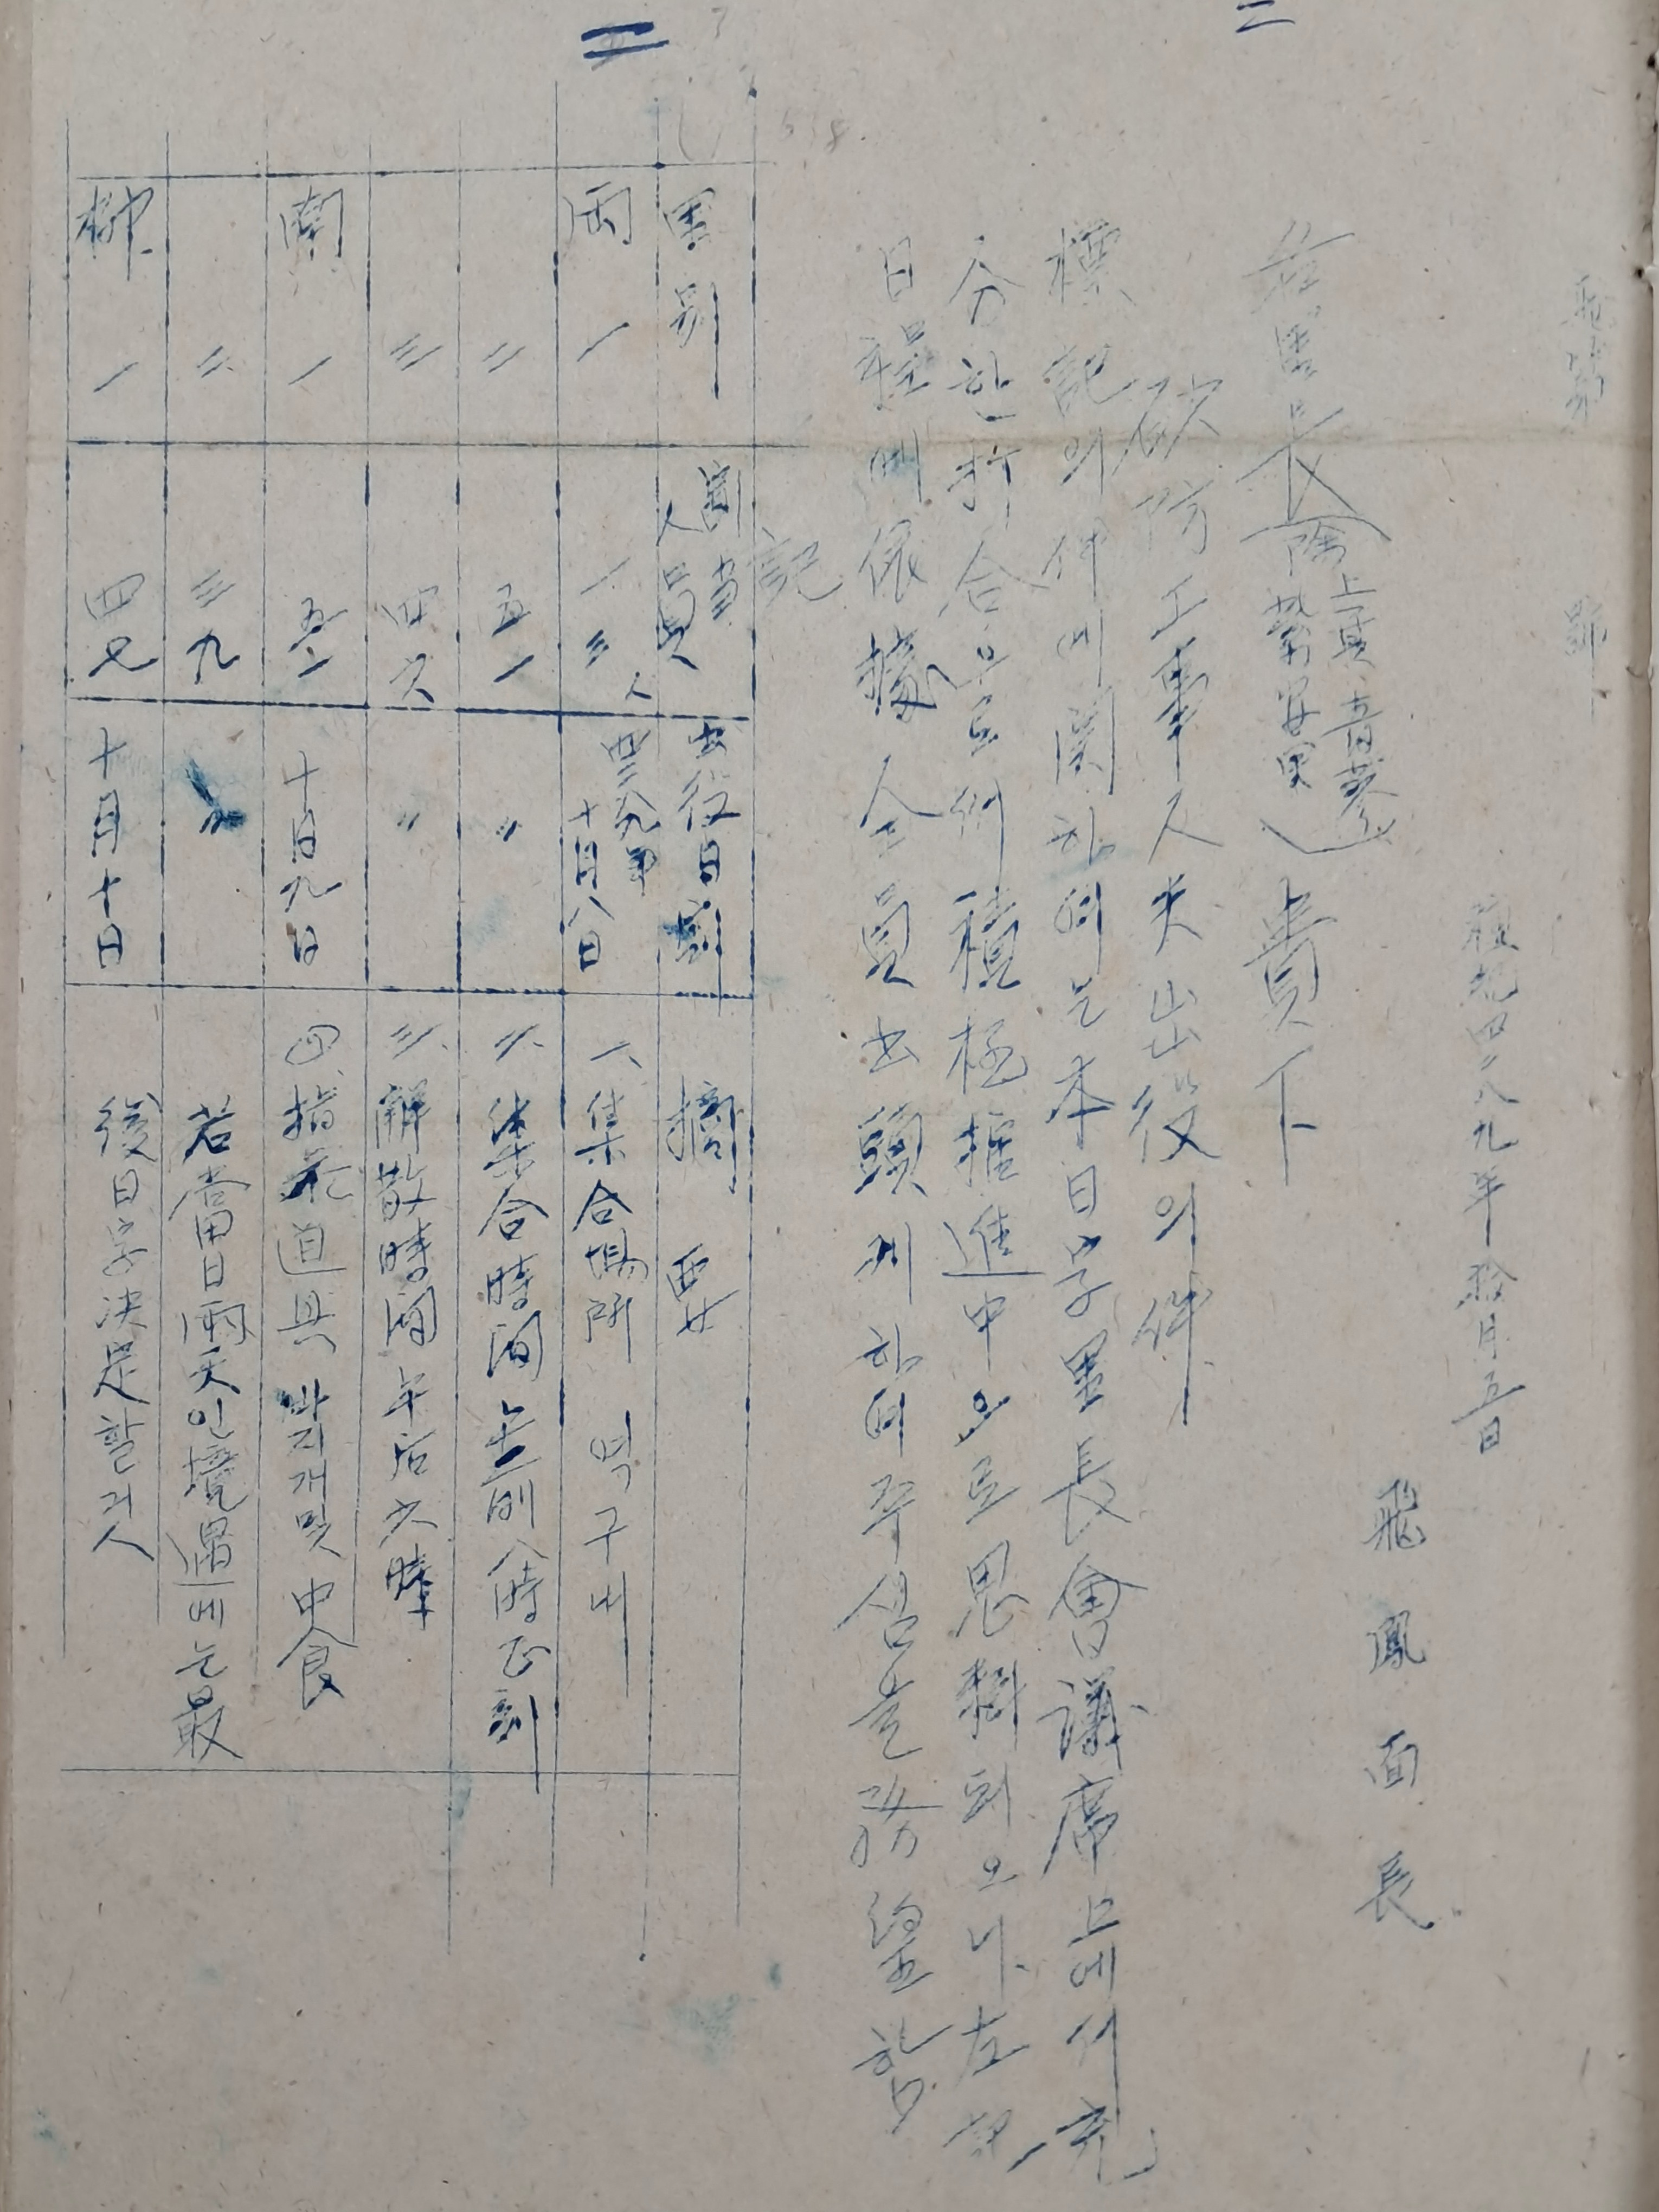 飛第 號
檀紀四二八九年拾月五日
飛鳳面長
各里長(除 上眞、青基 紫安里)貴下
砂防工事人夫出役의件
標記의件에關하여는本日字里長會議席上에서充
分한打合으로써積極推進中으로思料되오니左記
日程에依據全員出頭케하여주심을務望함
記
里別 割當人員 出役日割 摘要
雨一 一三人 四二八九年十月八日 一、集合場所 역구비
二 五一 〃 二、集合時間午前八時正刻
三 四六 〃 三、解散時間午后六時
南一 五一 十月九日 四、指示道具 바지개및中食
二 三九 〃 若當日雨天인境遇에는最
柳一 四七 十月十日 後日字決定할것